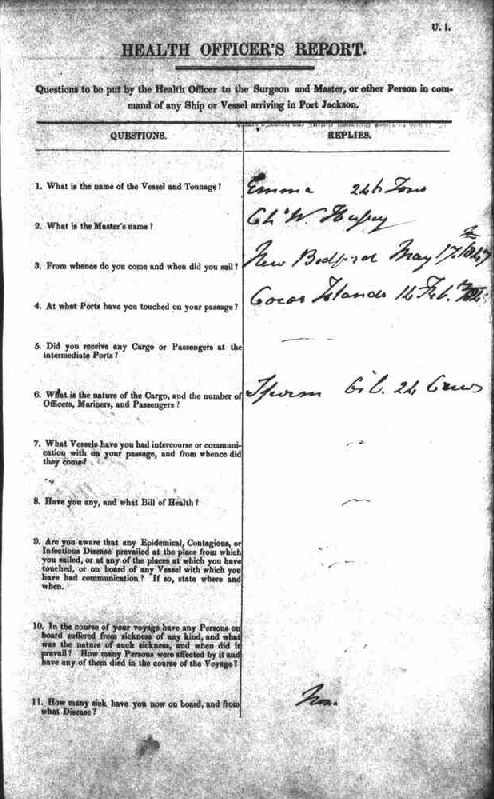 U. 1.
HEALTH OFFICER'S REPORT.
Questions to be put by the Health Officer to the Surgeon and Master, or other Person in com-
mand of any Ship or Vessel arriving in Port Jackson.
QUESTIONS. REPLIES.
1. What is the name of the Vessel and Tonnage? Emma 246 Tons
2. What is the Master's name? Chs W.
3. From whence do you come and when did you sail? New Bedford May
4. At what Ports have you touched on your passage? Cocos Islands 14 Feb.
5. Did you receive any Cargo or Passengers at the
intermediate Ports?
6. What is the nature of the Cargo, and the number of Sperm Oil. 24 Crew
Officers, Mariners, and Passengers?
7. What Vessels have you had intercourse or communi-
cation with on your passage, and from whence did
they come?
8. Have you any, and what Bill of Health?
9. Are you aware that any Epidemical, Contagious, or
Infectious Disease prevailed at the place from which
you sailed, or at any of the places at which you have
touched, or on board of any Vessel with which you
have had communication? If so, state where and
when.
10. In the course of your voyage have any Persons on
board suffered from sickness of any kind, and what
was the nature of such sickness, and when did it
prevail? How many Persons were affected by it and
have any of them died in the course of the Voyage?
11. How many sick have you now on board, and from
what Disease?